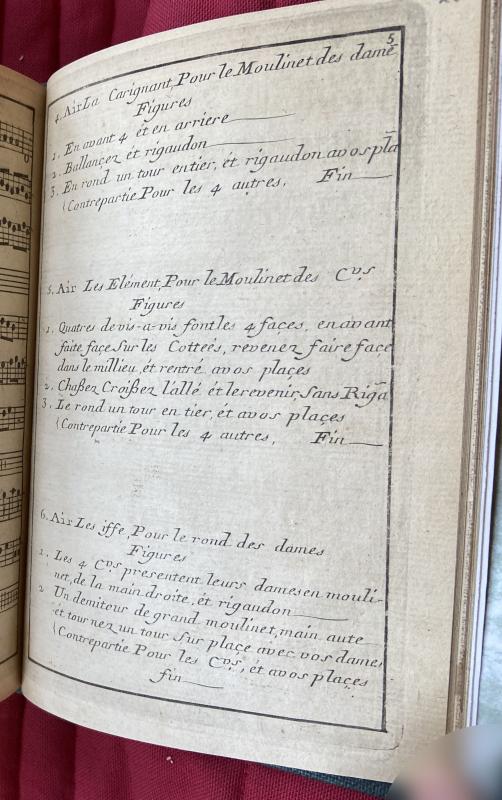 5
4. Air La Carignant, Pour le Moulinet des dame
Figures
1. En avant 4 ét en arriere
2. Ballançez ét rigaudon
3. En rond un tour entier, ét rigaudon avos pla
(Contrepartie Pour les 4 autres, Fin
5. Air Les Elément, Pour le Moulinet des C.vs
Figures
1. Quatres de vis-a-vis font les 4 faces, en avant
faite façe Sur les Cotteés, revenez faire face
dans le millieu, ét rentré avos plaçes
2. Chaßez Croißez l'allé ét le revenir Sans Riga
3. Le rond un tour en tier, et avos plaçes
(Contrepartie Pour les 4 autres, Fin
6. Air Les iffe, Pour le rond des dames
Figures
1. Les 4 C.vs presentent leurs dames en mouli-
net, de la main droite, ét rigaudon
2 Un demitour de grand moulinet, main aute
ét tournez un tour Sur plaçe avec vos dames
(Contrepartie Pour les C.vs, ét avos plaçes
fin